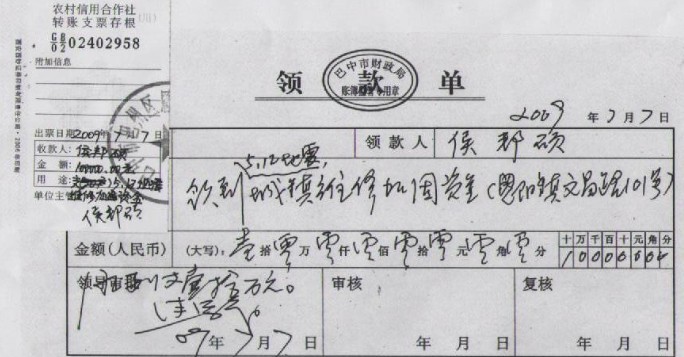 农村信用合作社
转账支票存根
GB
02 02402958
附加信息
出票日期2009年7月7日
收款人：侯邦硕
金 额：100000.00元
用 途：5.12地震
单位主管
侯邦硕
巴中市财政局
领 款 单
2009年7月7日
领款人 侯邦硕
5.12地震
领到城镇住修加固资金(恩阳镇文昌路101号)
金额(人民币) (大写)：壹拾零万零仟零佰零拾零元零角零分
十万千百十元角分
10000000
领导 壹拾万元。
09年7月7日
审核
年 月 日
复核
年 月 日